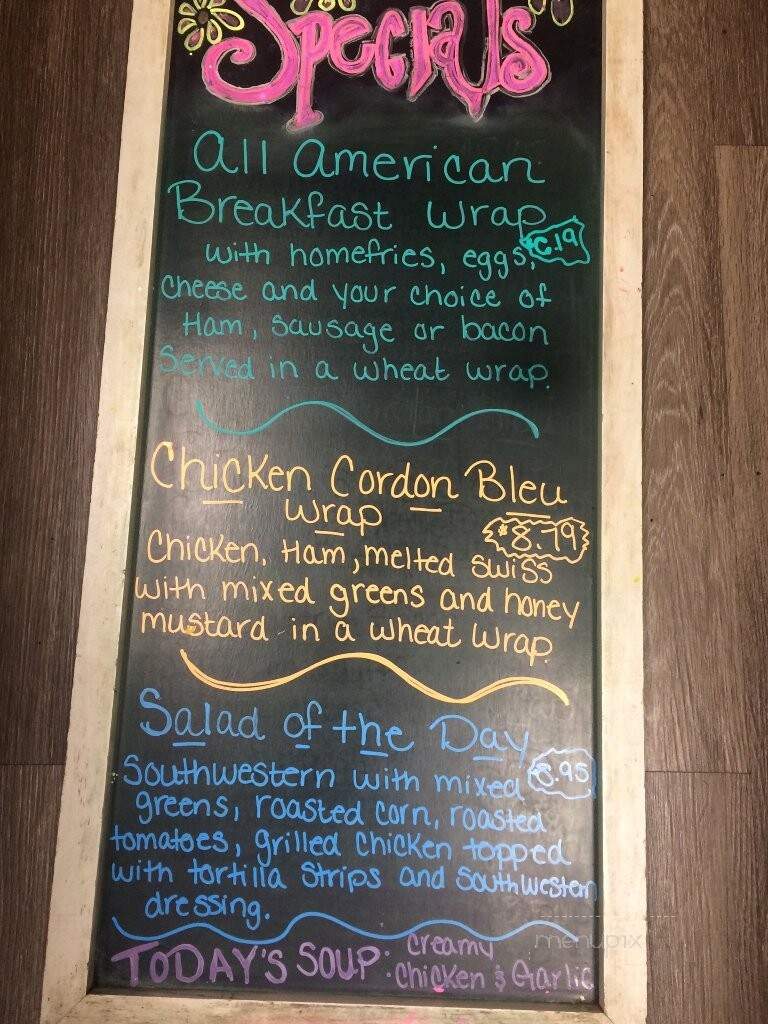 Specials
All American
Breakfast Wrap
with homefries, eggs,
cheese and your choice of
Ham, sausage or bacon
Served in a wheat wrap.
Chicken Cordon Bleu
Wrap
$8.79
Chicken, Ham, melted swiss
with mixed greens and honey
mustard in a wheat wrap
Salad of the Day
Southwestern with mixed
greens, roasted corn, roasted
tomatoes, grilled chicken topped
with tortilla strips and Southwestern
dressing.
TODAY'S SOUP: creamy
chicken & Garlic
menupix